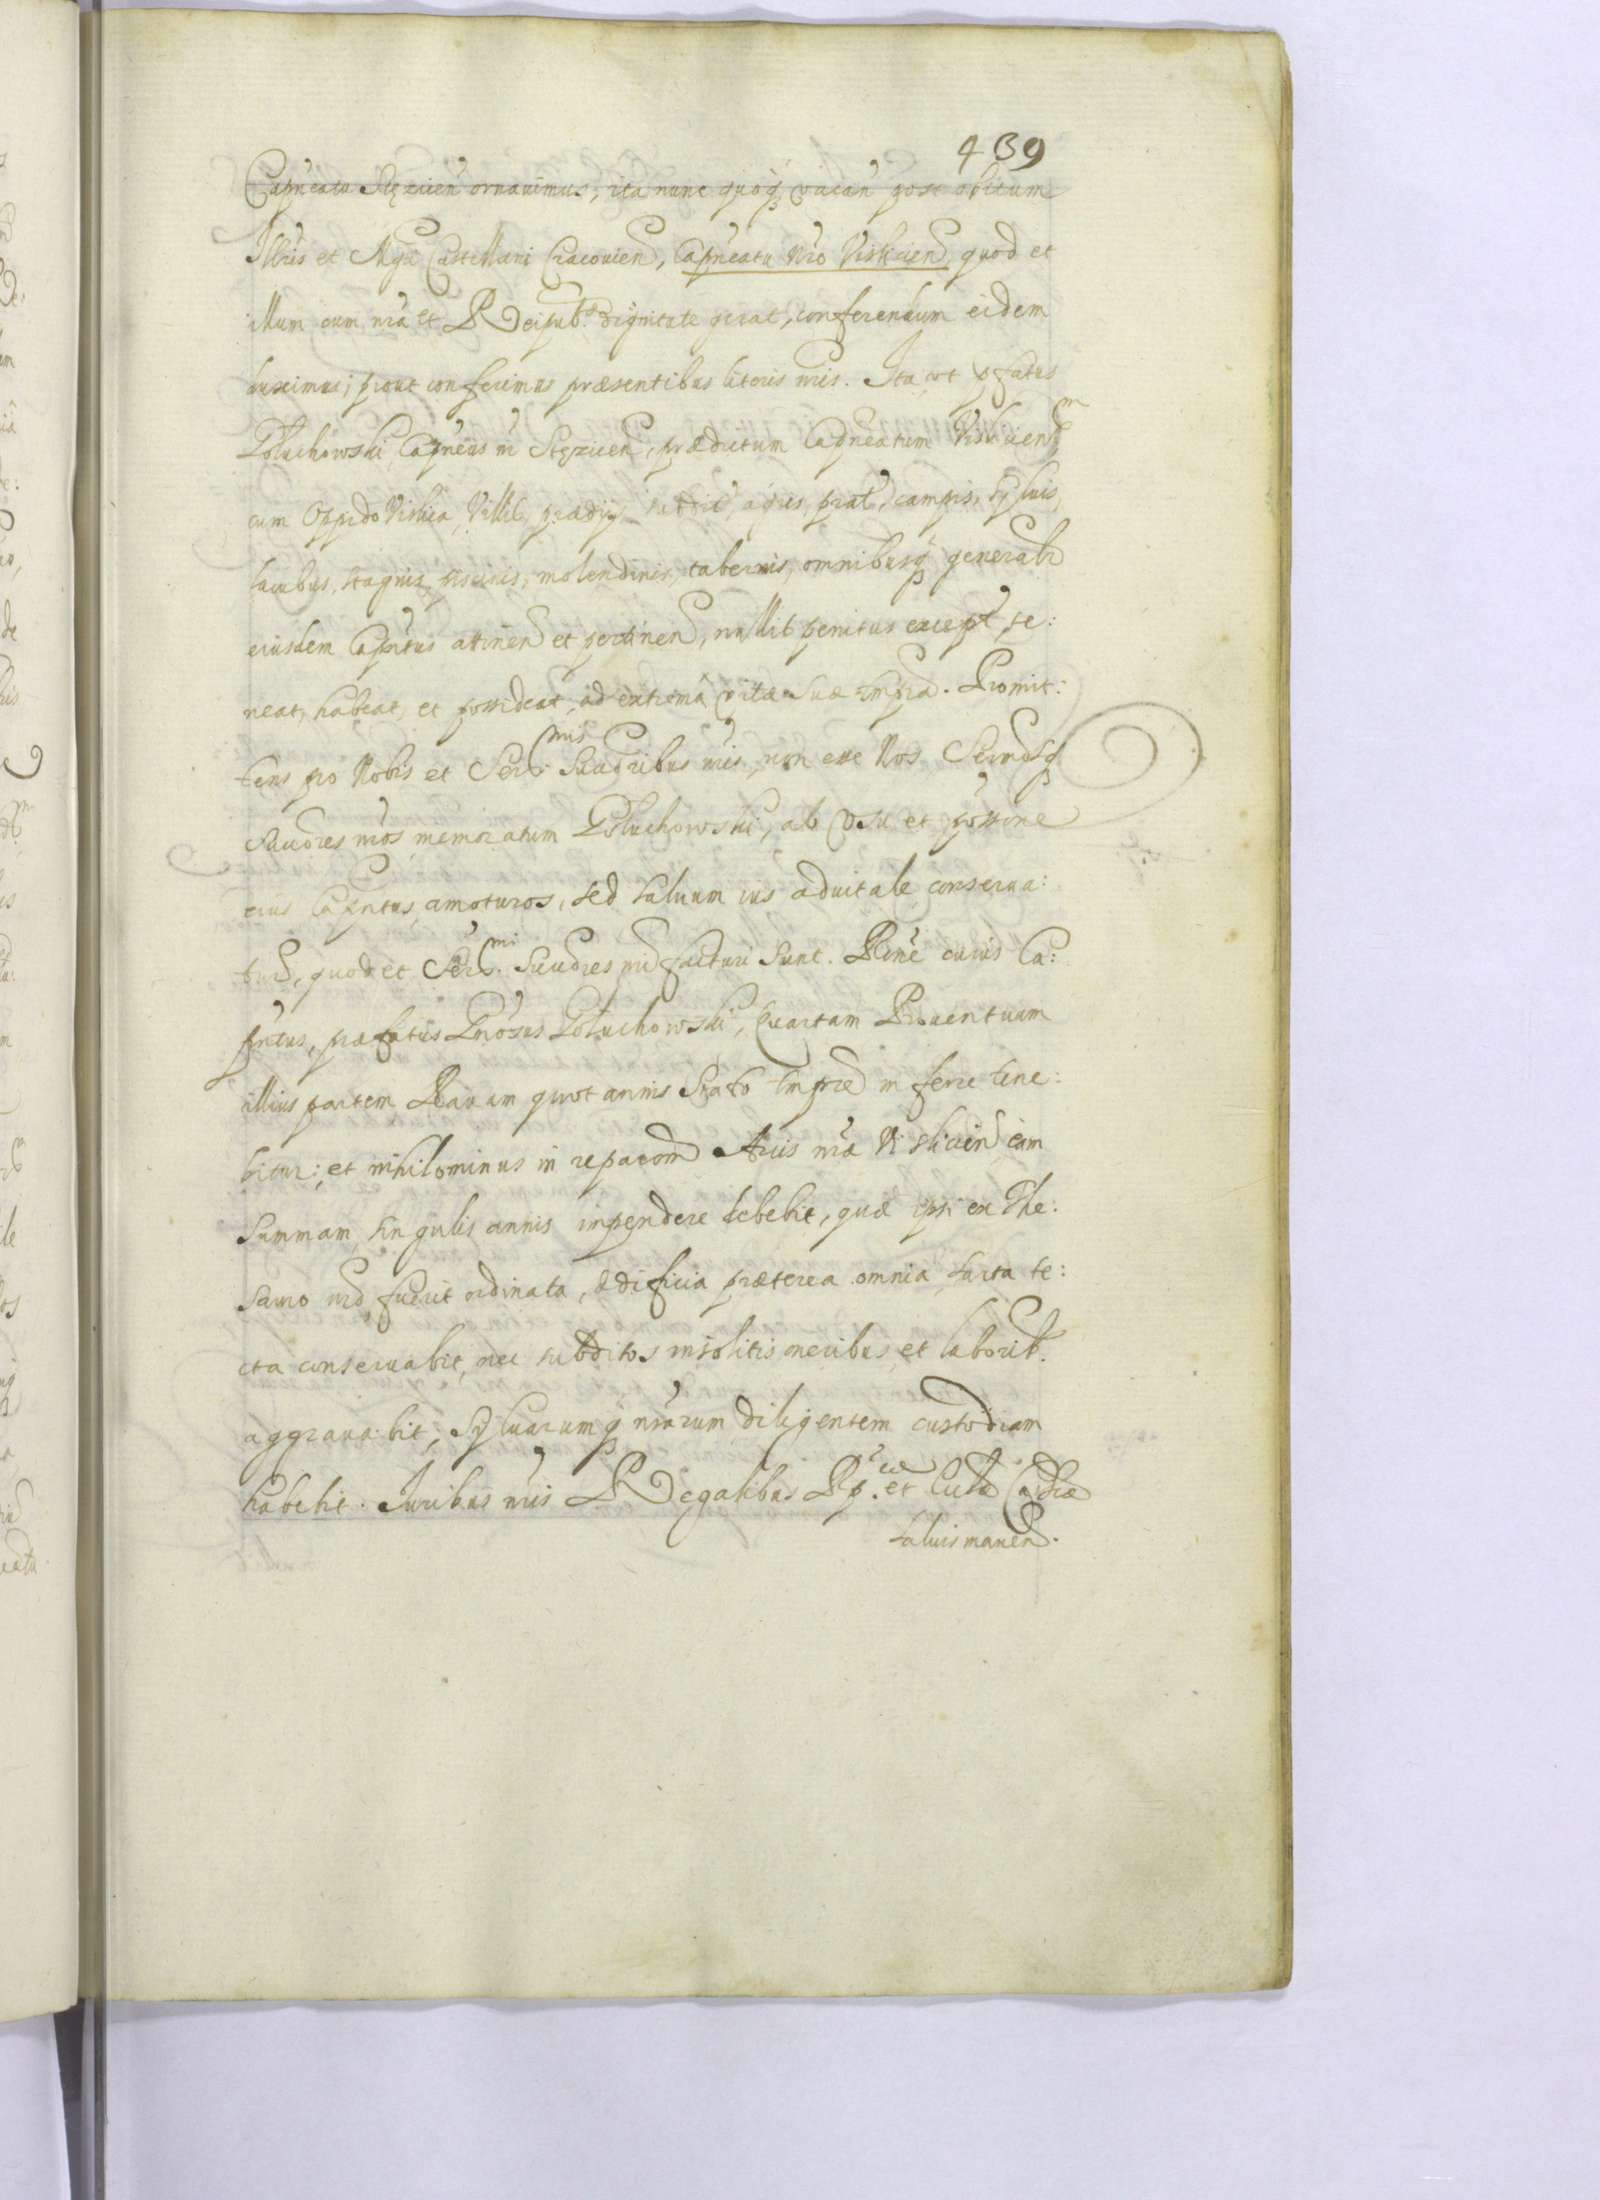 439
Capneatu Stęzicen ornauimus, ita nunc quoq vacan post obitum
Illris et Mgci Castellani Cracouien, Capneatu nro Vislicien, quod et
illum cum nra et Reipub. dignitate gerat, conferendum eidem
duximus; prout conferimus præsentibus literis nris. Ita vt pfatus
Poluchowski Capneus nr Stęzicen, prædictum Capneatum Visliciensem
cum Oppido Vislicia, Villis, prædijs, subdit, agris, prat, campis, syluis,
lacubus, stagnis, piscinis, molendinis, tabernis, omnibusq generalr
eiusdem Capntus attinen et pertinen, nullis penitus except, te:
neat, habeat, et possideat, ad extrema vitæ suæ tmpra. Promit:
tens pro Nobis et Sermis Succribus nris, non esse Nos Sermosq
Succres nros memoratum Poluchowski, ab vsu et possone
eius Capntus amoturos, sed saluum ius aduitale conserua:
turos, quod et Sermi Succres nri facturi sunt. Rone cuius Ca:
pntus, præfatus Gnosus Poluchowski, Quartam Prouentuum
illius partem Rauam quot annis Stato tmpre inferre tene:
bitur; et nihilominus in reparaom Arcis nræ Visliciens eam
summam, singulis annis impendere debebit, quæ ipsi ex The:
sauro nro fuerit ordinata, ædificia præterea omnia, sarta te:
cta conseruabit, nec subditos insolitis oneribus et laborib.
aggrauabit, Syluarumq nrarum diligentem custodiam
habebit. Iuribus nris Regalibus Rp. et Eccla Cathcæ
saluis manen.